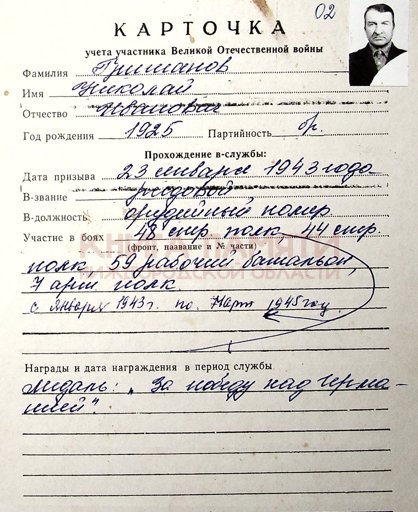 02
КАРТОЧКА
учета участника Великой Отечественной войны
Фамилия Гришанов
Имя Николай
Отчество Иванович
Год рождения 1925 Партийность бр.
Прохождение в-службы:
Дата призыва 23 января 1943 года
В-звание рядовой
В-должность орудийный номер
Участие в боях 48 стр. полк 44 стр.
(фронт, название и № части)
полк, 59 рабочий батальон,
7 арт полк
с января 1943 г. по март 1945 год.
КНИГА ПАМЯТИ
ОБЛАСТИ
Награды и дата награждения в период службы
Медаль: „За победу над Герма-
нией".